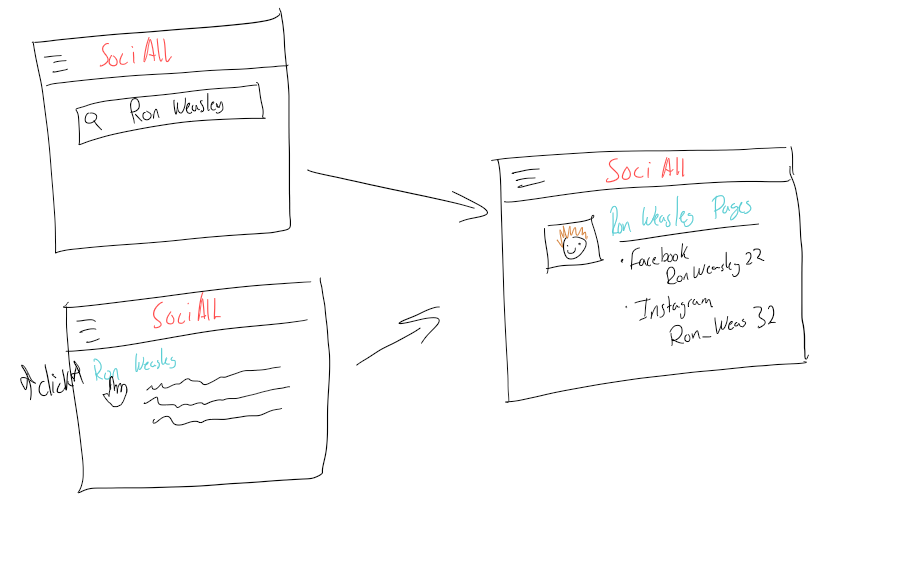 Soci All
Ron Weasley
Soci All
Ron Weasley
*click*
Soci All
Ron Weasley Pages
• Facebook
RonWeasley22
• Instagram
Ron_Weas32